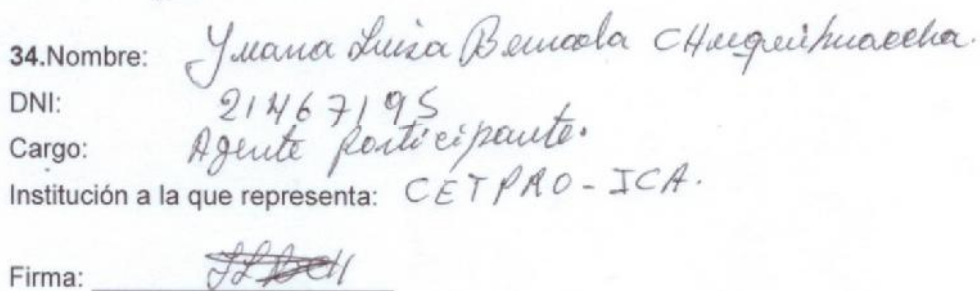 34.Nombre: Juana Luisa Bernaola CHuquihuaccha.
DNI: 21467195
Cargo: Agente participante.
Institución a la que representa: CETPRO-ICA.
Firma: